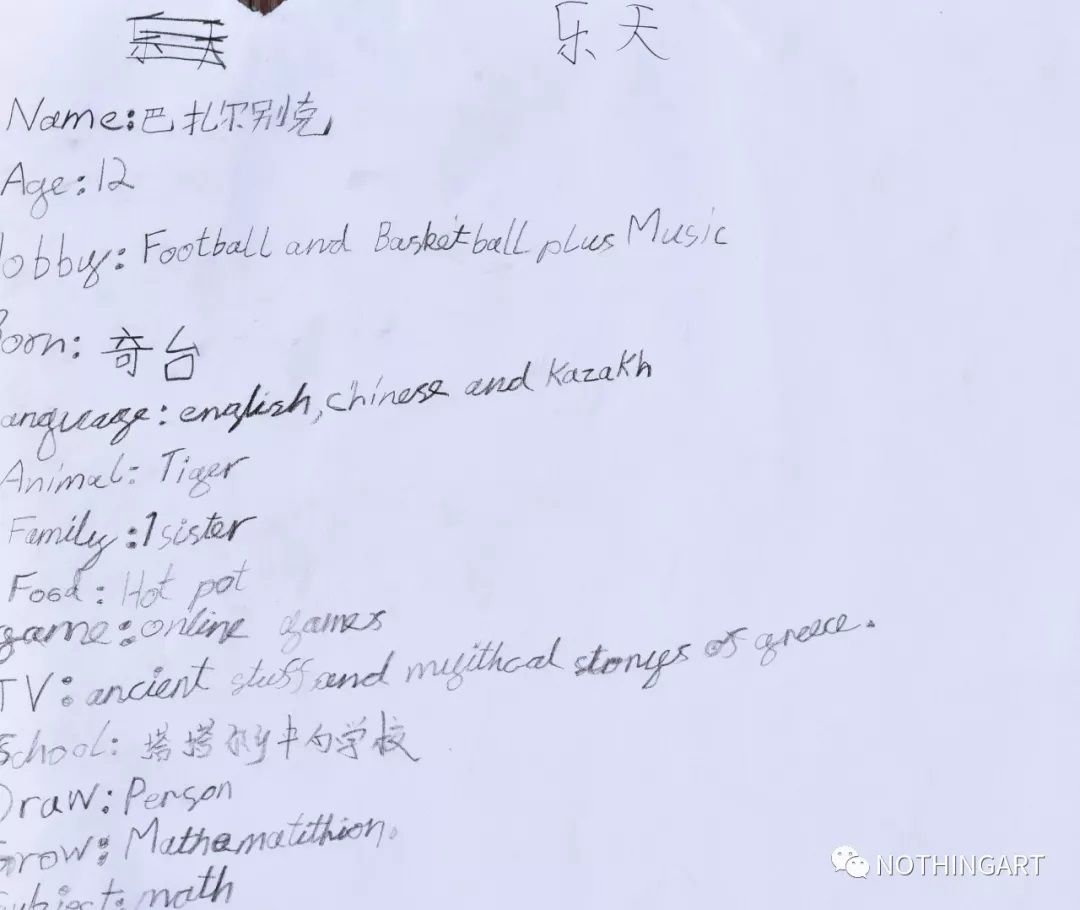 乐天
乐天
Name:巴扎尔别克
Age:12
Hobby: Football and Basketball plus Music
Born: 奇台
Language: english, chinese and Kazakh
Animal: Tiger
Family: 1 sister
Food: Hot pot
game: online games
TV: ancient stuff and myithcal storys of greece.
School: 塔塔 学校
Draw: Person
Grow: Mathematithion.
Subject: math
NOTHINGART